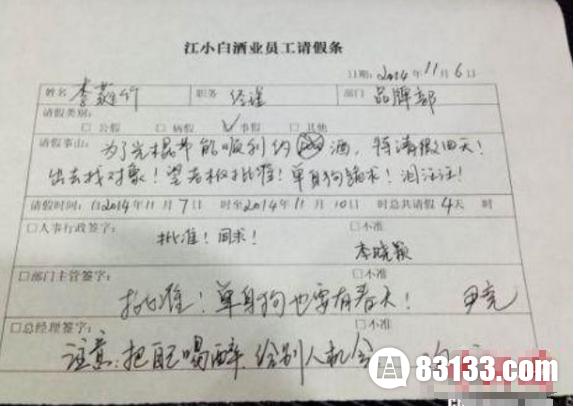 江小白酒业员工请假条
日期: 2014年11月6日
姓名 李 竹 职务 经理 部门 品牌部
请假类别:
□公假 □病假 ☑事假 □其他
请假事由: 为了光棍节能顺利约 酒,特请假四天!
出去找对象!望老板批准!单身狗跪求!泪汪汪!
请假时间: 自2014年11月7日 时至2014年11月10日 时总共请假4天 时
□人事行政签字: □不准
批准!同求!
李晓颖
□部门主管签字: □不准
批准!单身狗也要有春天! 尹亮
□总经理签字: □不准
注意:把自己喝醉,给别人机会
83133.com